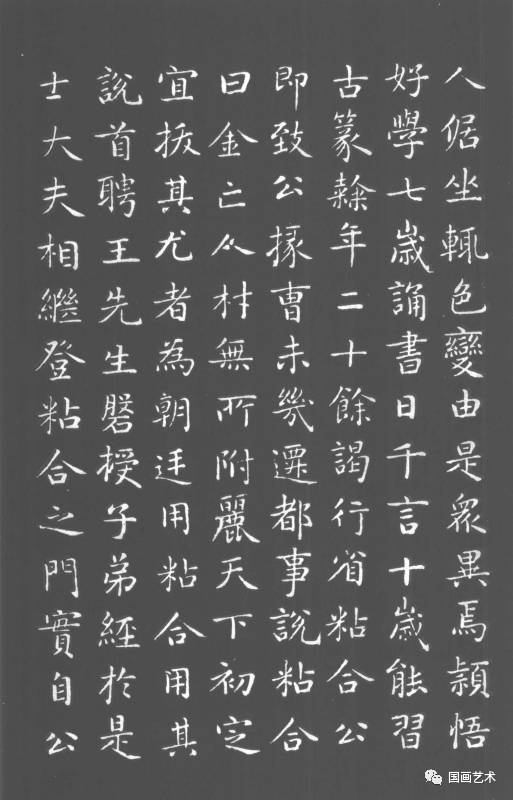 人倨坐輒色變由是衆異焉頴悟
好學七歲誦書日千言十歲能習
古篆隸年二十餘謁行省粘合公
即致公掾曹未幾遷都事說粘合
曰金亡人材無所附麗天下初定
宜拔其尤者為朝廷用粘合用其
說首聘王先生磐授子弟經於是
士大夫相繼登粘合之門實自公
国画艺术